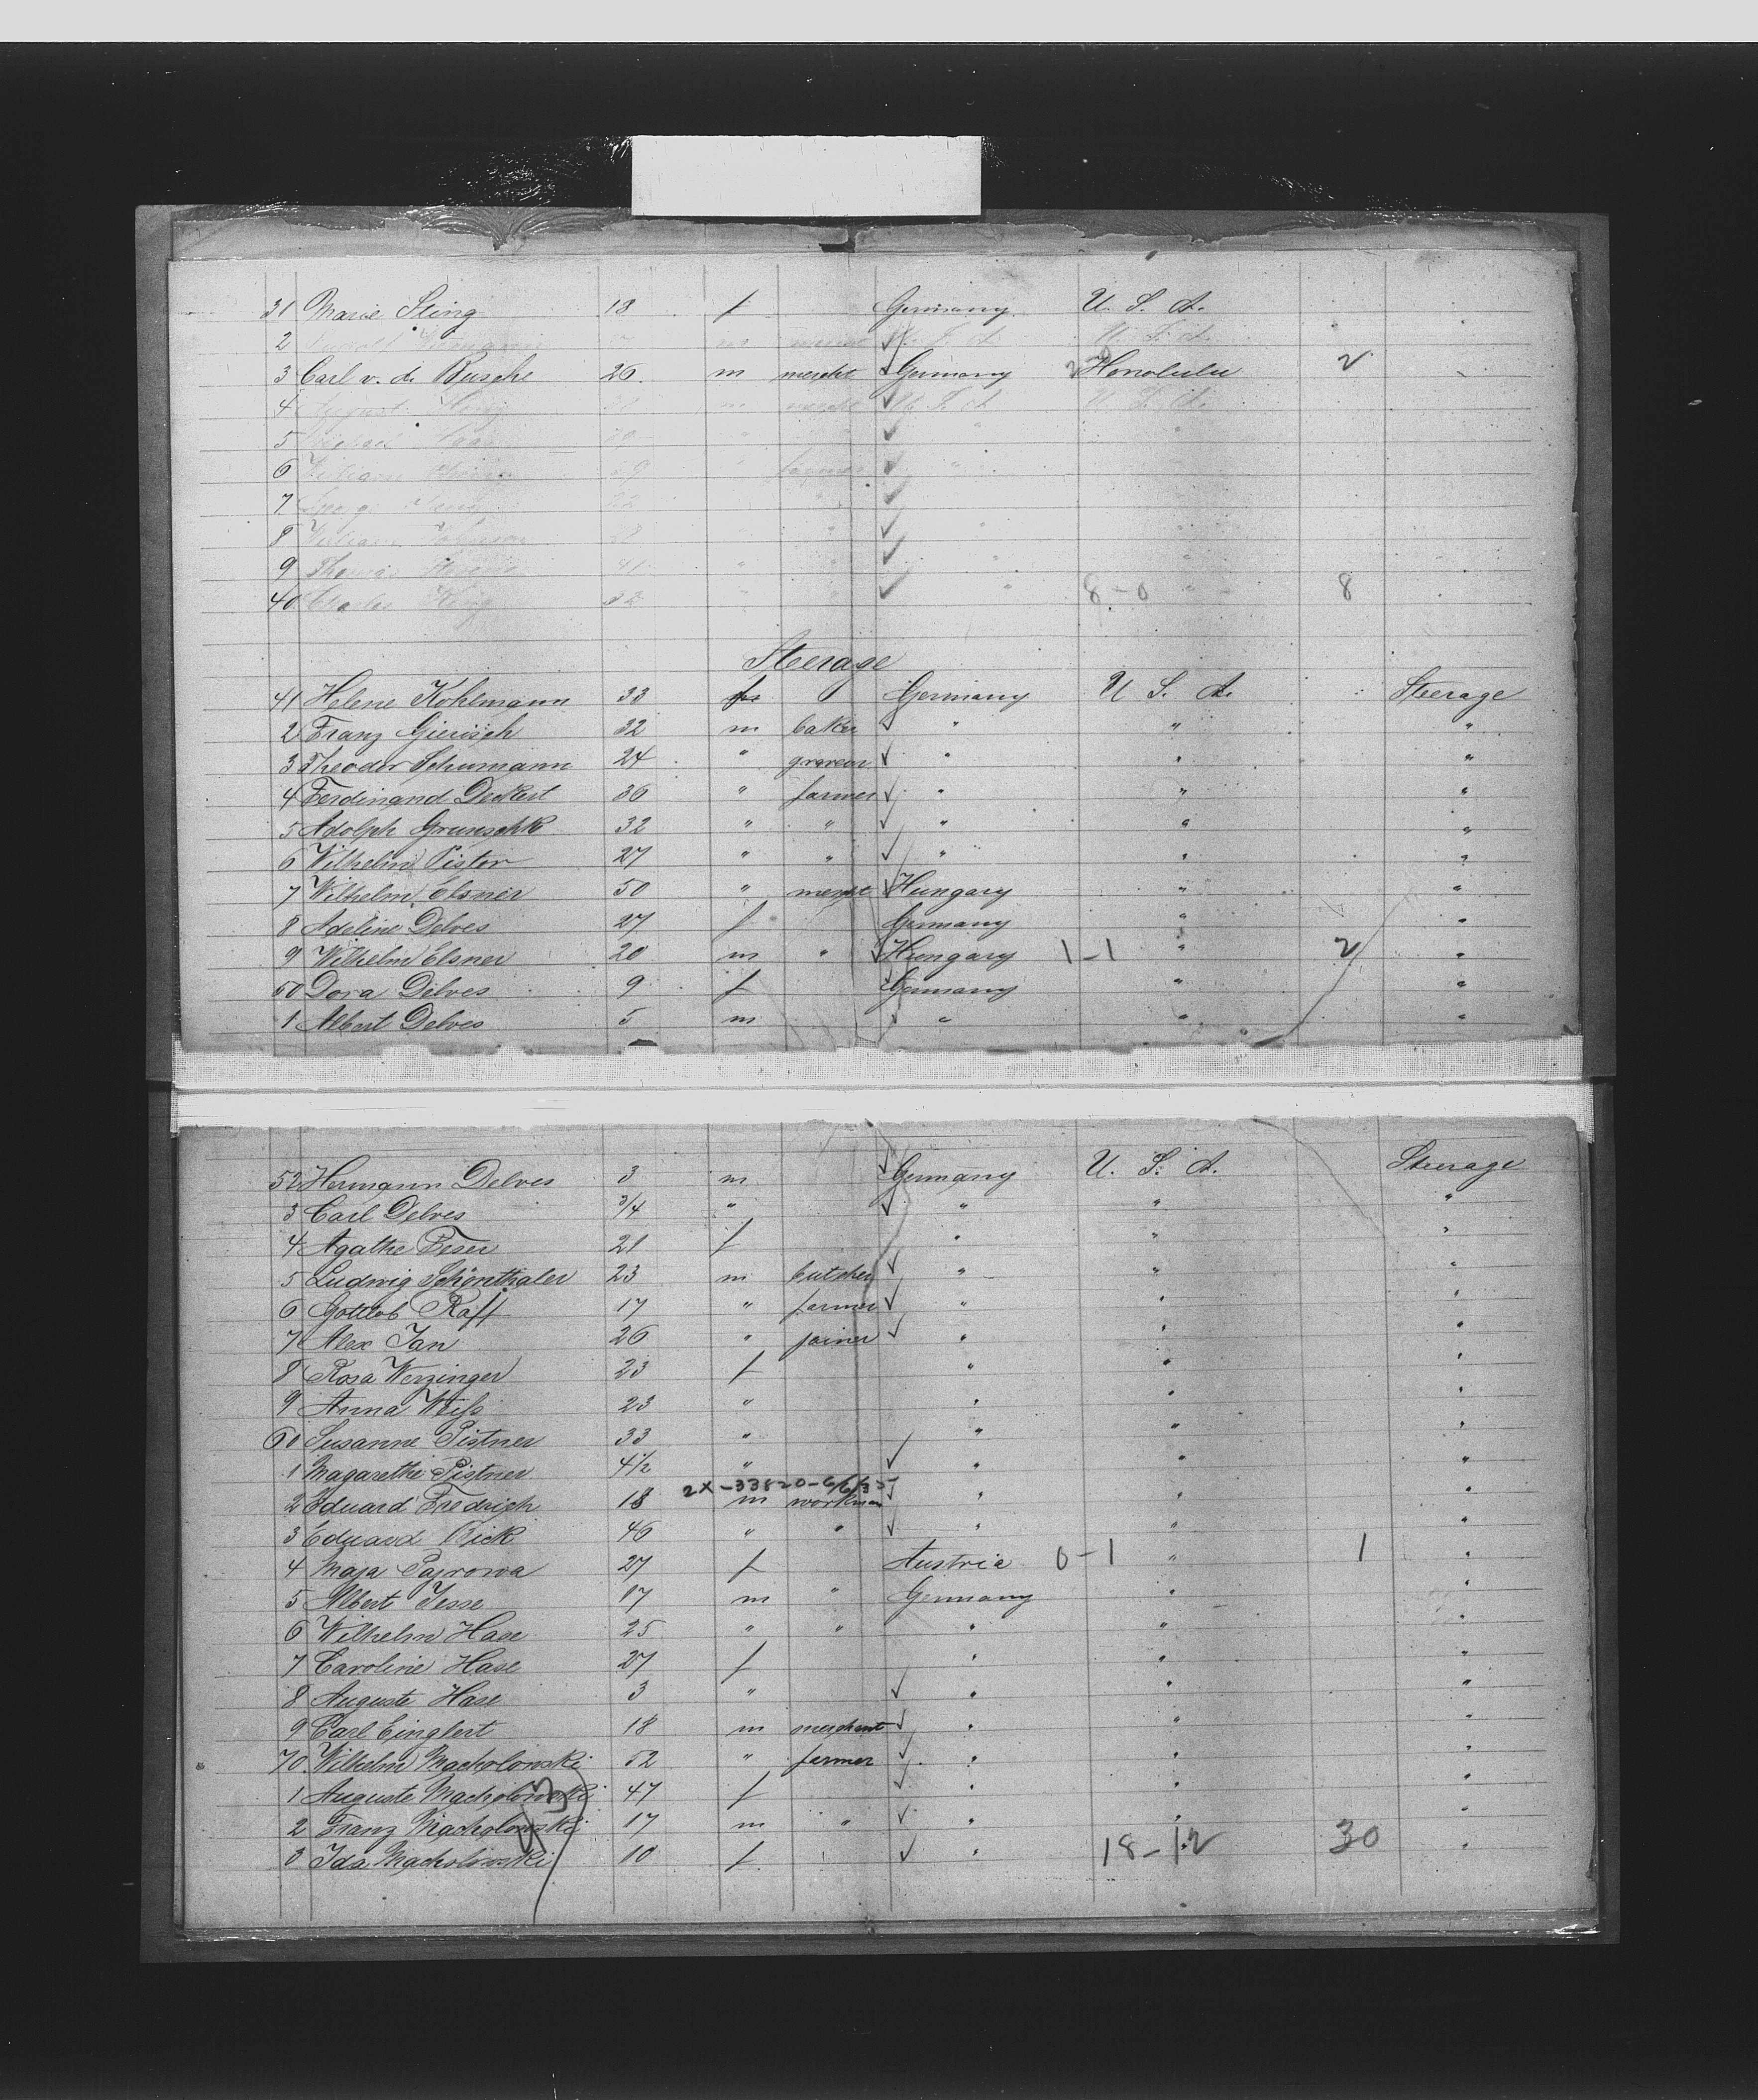 31 Marie Sling 18 f Germany U. S. A.
2 m U. S. A. U. S. A.
3 Carl v. d. Busche 26 m mercht Germany 2 Honolulu 2
4 August m U. S. A. U. S. A.
5 Michael Haas " " "
6 William 29 " farmer "
7 Georg 22 "
8 William Johnson " " "
9 Thomas 41 " " " "
40 Charles King 32 " " " 8-0 " 8
Steerage
41 Helene Kohlmann 33 f Germany U. S. A. Steerage
2 Franz Gierisch 32 m baker " " "
3 Theodor Schumann 24 " graveur " " "
4 Ferdinand Deckert 36 " farmer " " "
5 Adolph Gruneschk 32 " " " " "
6 Wilhelm Pister 27 " " " " "
7 Wilhelm Elsner 50 " Hungary " "
8 Adeline Delves 27 f Germany " "
9 Wilhelm Elsner 20 m " Hungary 1-1 " 2 "
50 Dora Delves 9 f Germany " "
1 Albert Delves 5 m " " "
52 Hermann Delves 3 m Germany U. S. A. Steerage
3 Carl Delves 3/4 " " " "
4 Agathe Feser 21 f " " "
5 Ludwig Schönthaler 23 m butcher " " "
6 Gottlob Raff 17 " farmer " " "
7 Alex Jan 26 " joiner " " "
8 Rosa Werzinger 23 f " " "
9 Anna Weiss 23 " " " "
60 Susanne Pistner 33 " " " "
1 Magarethe Pistner 4 1/2 " " " "
2x-33820-6/6/35
2 Eduard Fredrich 18 m workman " " "
3 Eduard Bick 46 " " " " "
4 Maja Pajrowa 27 f Austria 0-1 " 1 "
5 Albert Jesse 17 m " Germany " "
6 Wilhelm Hase 25 " " " " "
7 Caroline Hase 27 f " " "
8 Auguste Hase 3 " " " "
9 Carl Einglert 18 m merchant " " "
70 Wilhelm Macholowski 52 " farmer " " "
1 Auguste Macholowski 47 f " " "
2 Franz Macholowski 17 m " " " "
3 Ida Macholowski 10 f " 18-12 30 "
43